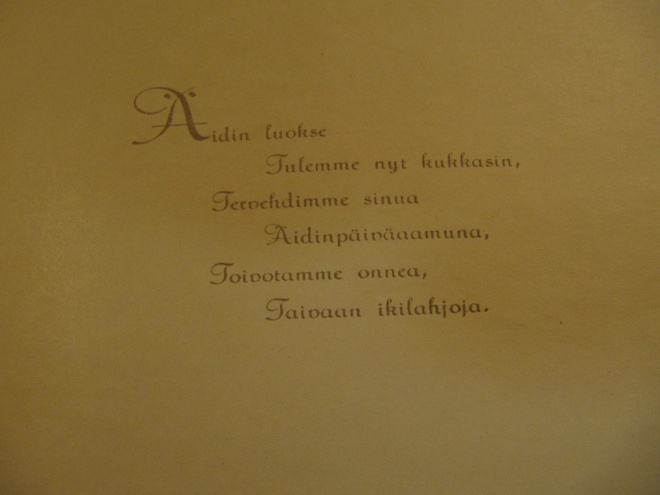 Äidin luokse
Tulemme nyt kukkasin,
Tervehdimme sinua
Äidinpäiväaamuna,
Toivotamme onnea,
Taivaan ikilahjoja.